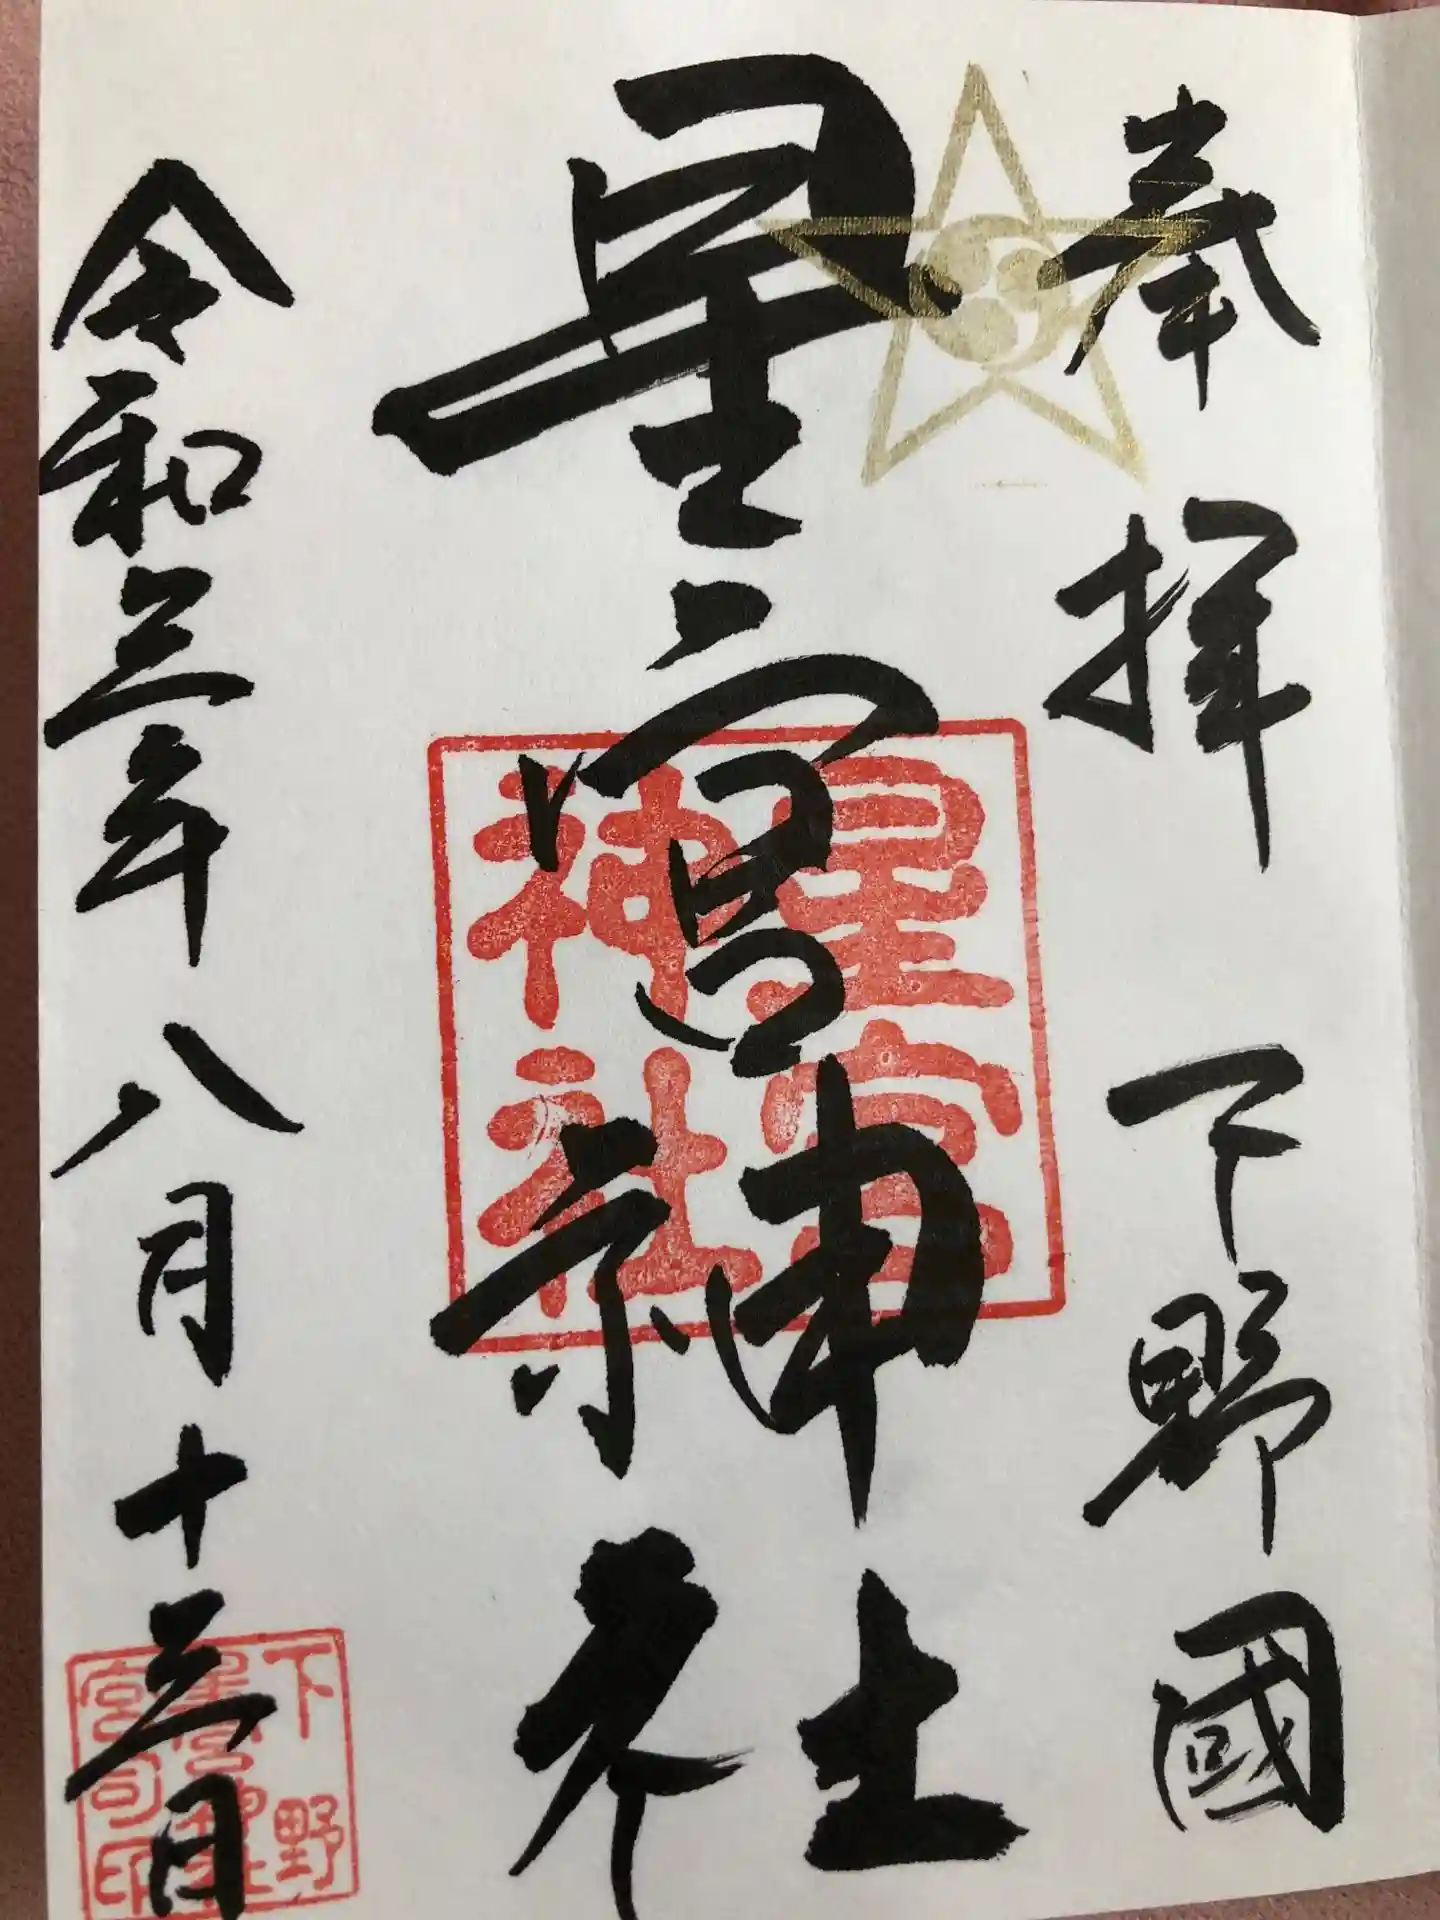 奉拝 下野國
星宮神社
令和三年八月十三日
星宮
神社
下野
星宮神社
宮司印